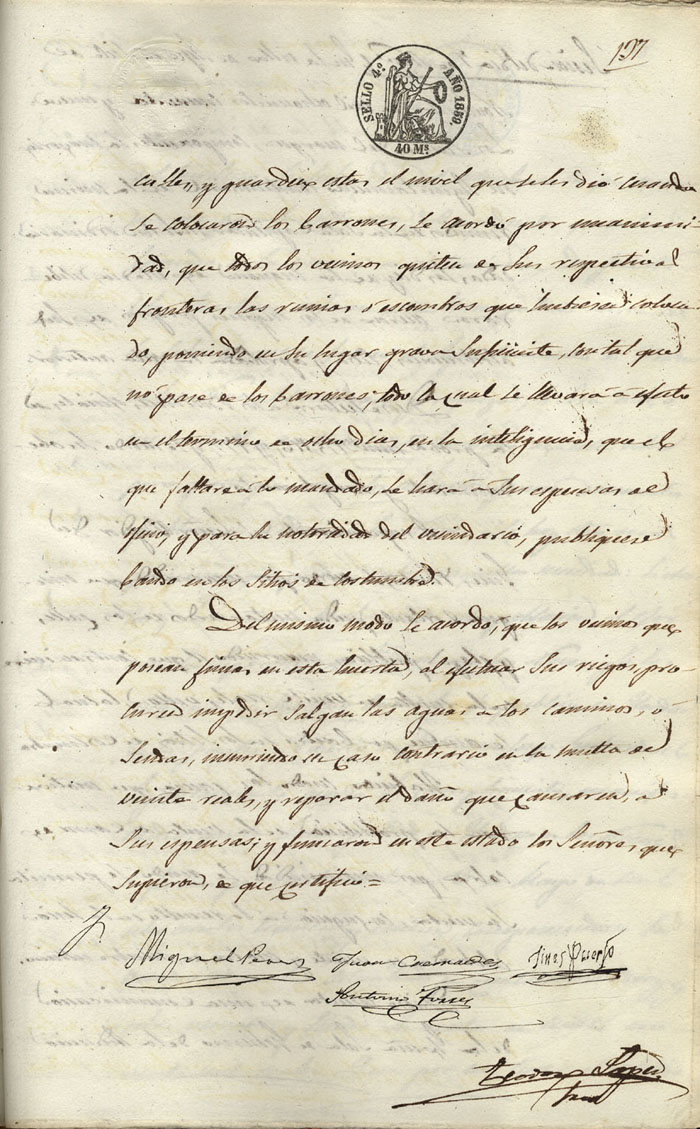 137
SELLO 4º AÑO 1859.
40 Ms.
calles, y guarden estas el nivel que se les dió cuando
se colocaron los barrones, se acordó por unanimi-
dad, que todos los vecinos quiten de sus respectivas
fronteras las ruinas o escombros que hubiesen coloca-
do, poniendo en su lugar grava suficiente, con tal que
no pase de los barrones; todo lo cual se llevará a efecto
en el termino de ocho dias, en la inteligencia, que el
que faltare a lo mandado, se hará a sus espensas al
y para la notoriedad del vecindario, publiquese
bando en los sitios de costumbre.
Del mismo modo se acordo; que los vecinos que
posean fincas en esta huerta, al efectuar sus riegos pro-
curen impedir salgan las aguas a los caminos, o
sendas, incurriendo en caso contrario en la multa de
veinte reales, y reparar el daño que causaren, a
sus espensas; y firmaron en este estado los Señores que
supieron, de que certifico=
Miguel Juan
Gines
Antonio
Lopez